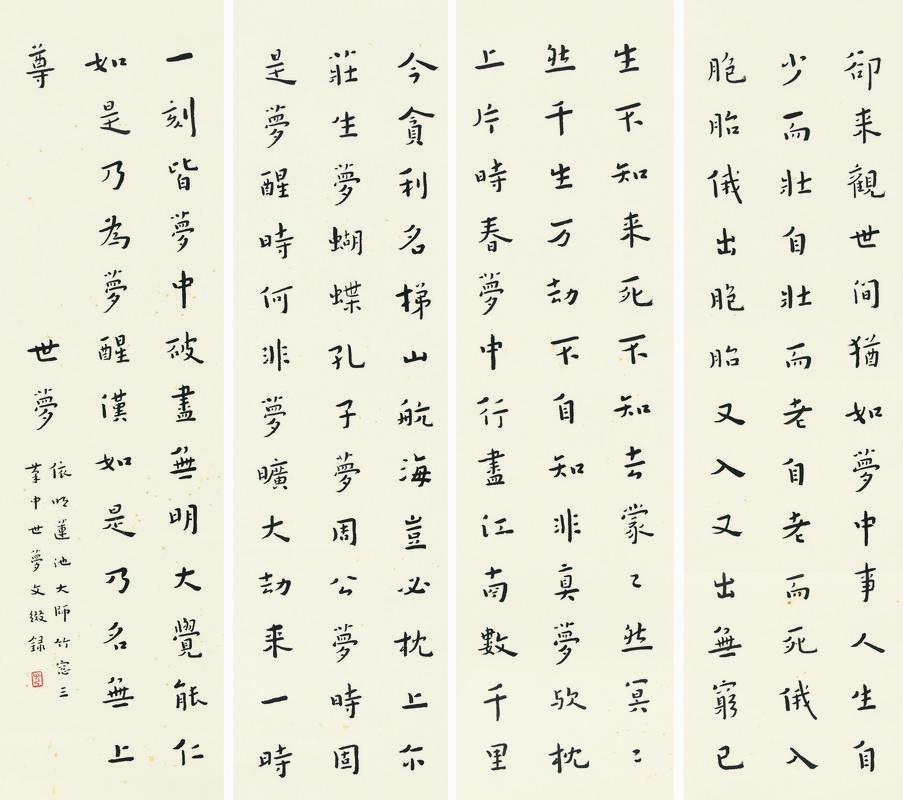 卻来觀世间猶如夢中事人生自
少而壯自壯而老自老而死俄入
胞胎俄出胞胎又入又出無窮已
生不知来死不知去蒙〻然冥〻
然千生万劫不自知非真夢欤枕
上片時春夢中行盡江南數千里
今貪利名梯山航海豈必枕上尔
莊生夢蝴蝶孔子夢周公夢時固
是夢醒時何非夢曠大劫来一時
一刻皆夢中破盡無明大覺能仁
如是乃為夢醒漢如是乃名無上
尊 世夢
依明蓮池大師竹窓三
筆中世夢文缀録